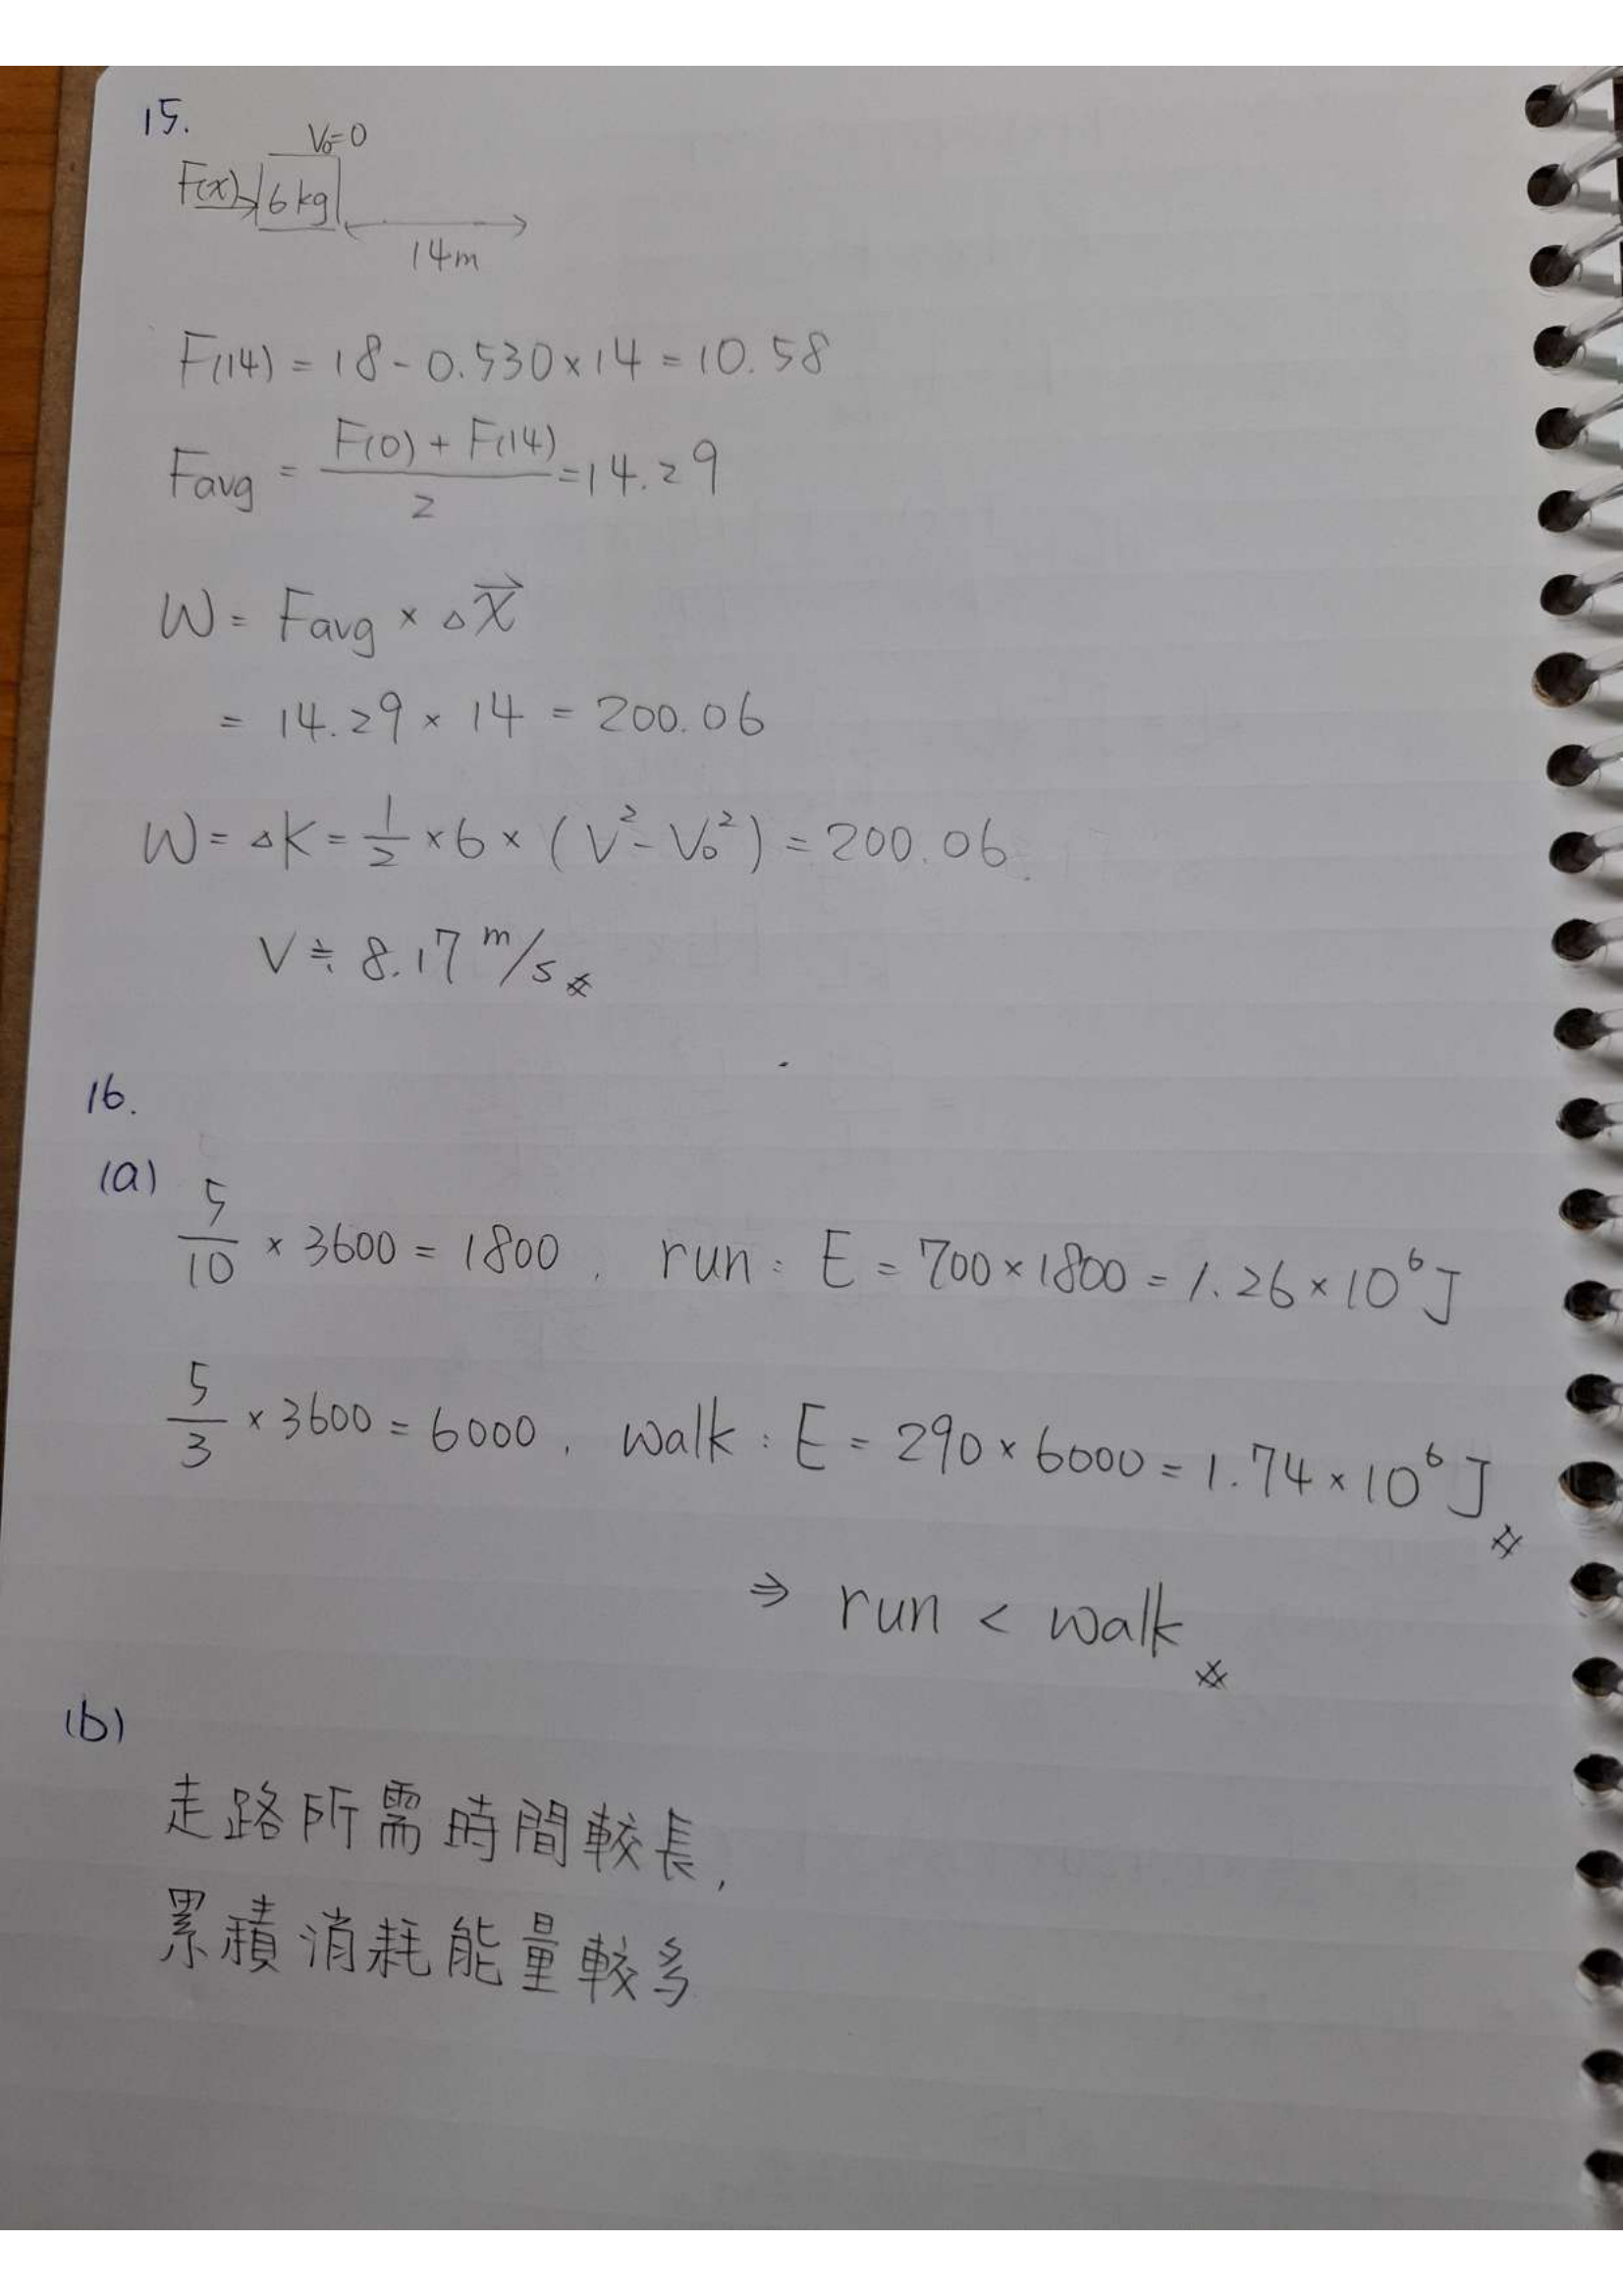 15.
V₀=0
F(x)→ 6kg
14m
F(14) = 18 - 0.530 × 14 = 10.58
Favg = (F(0) + F(14))/2 = 14.29
W = Favg × △x⃗
= 14.29 × 14 = 200.06
W = △K = 1/2 × 6 × (V² - V₀²) = 200.06
V ≒ 8.17 m/s #
16.
(a)
5/10 × 3600 = 1800 , run : E = 700 × 1800 = 1.26 × 10⁶ J
5/3 × 3600 = 6000 , walk : E = 290 × 6000 = 1.74 × 10⁶ J #
⇒ run < walk #
(b)
走路所需時間較長,
累積消耗能量較多